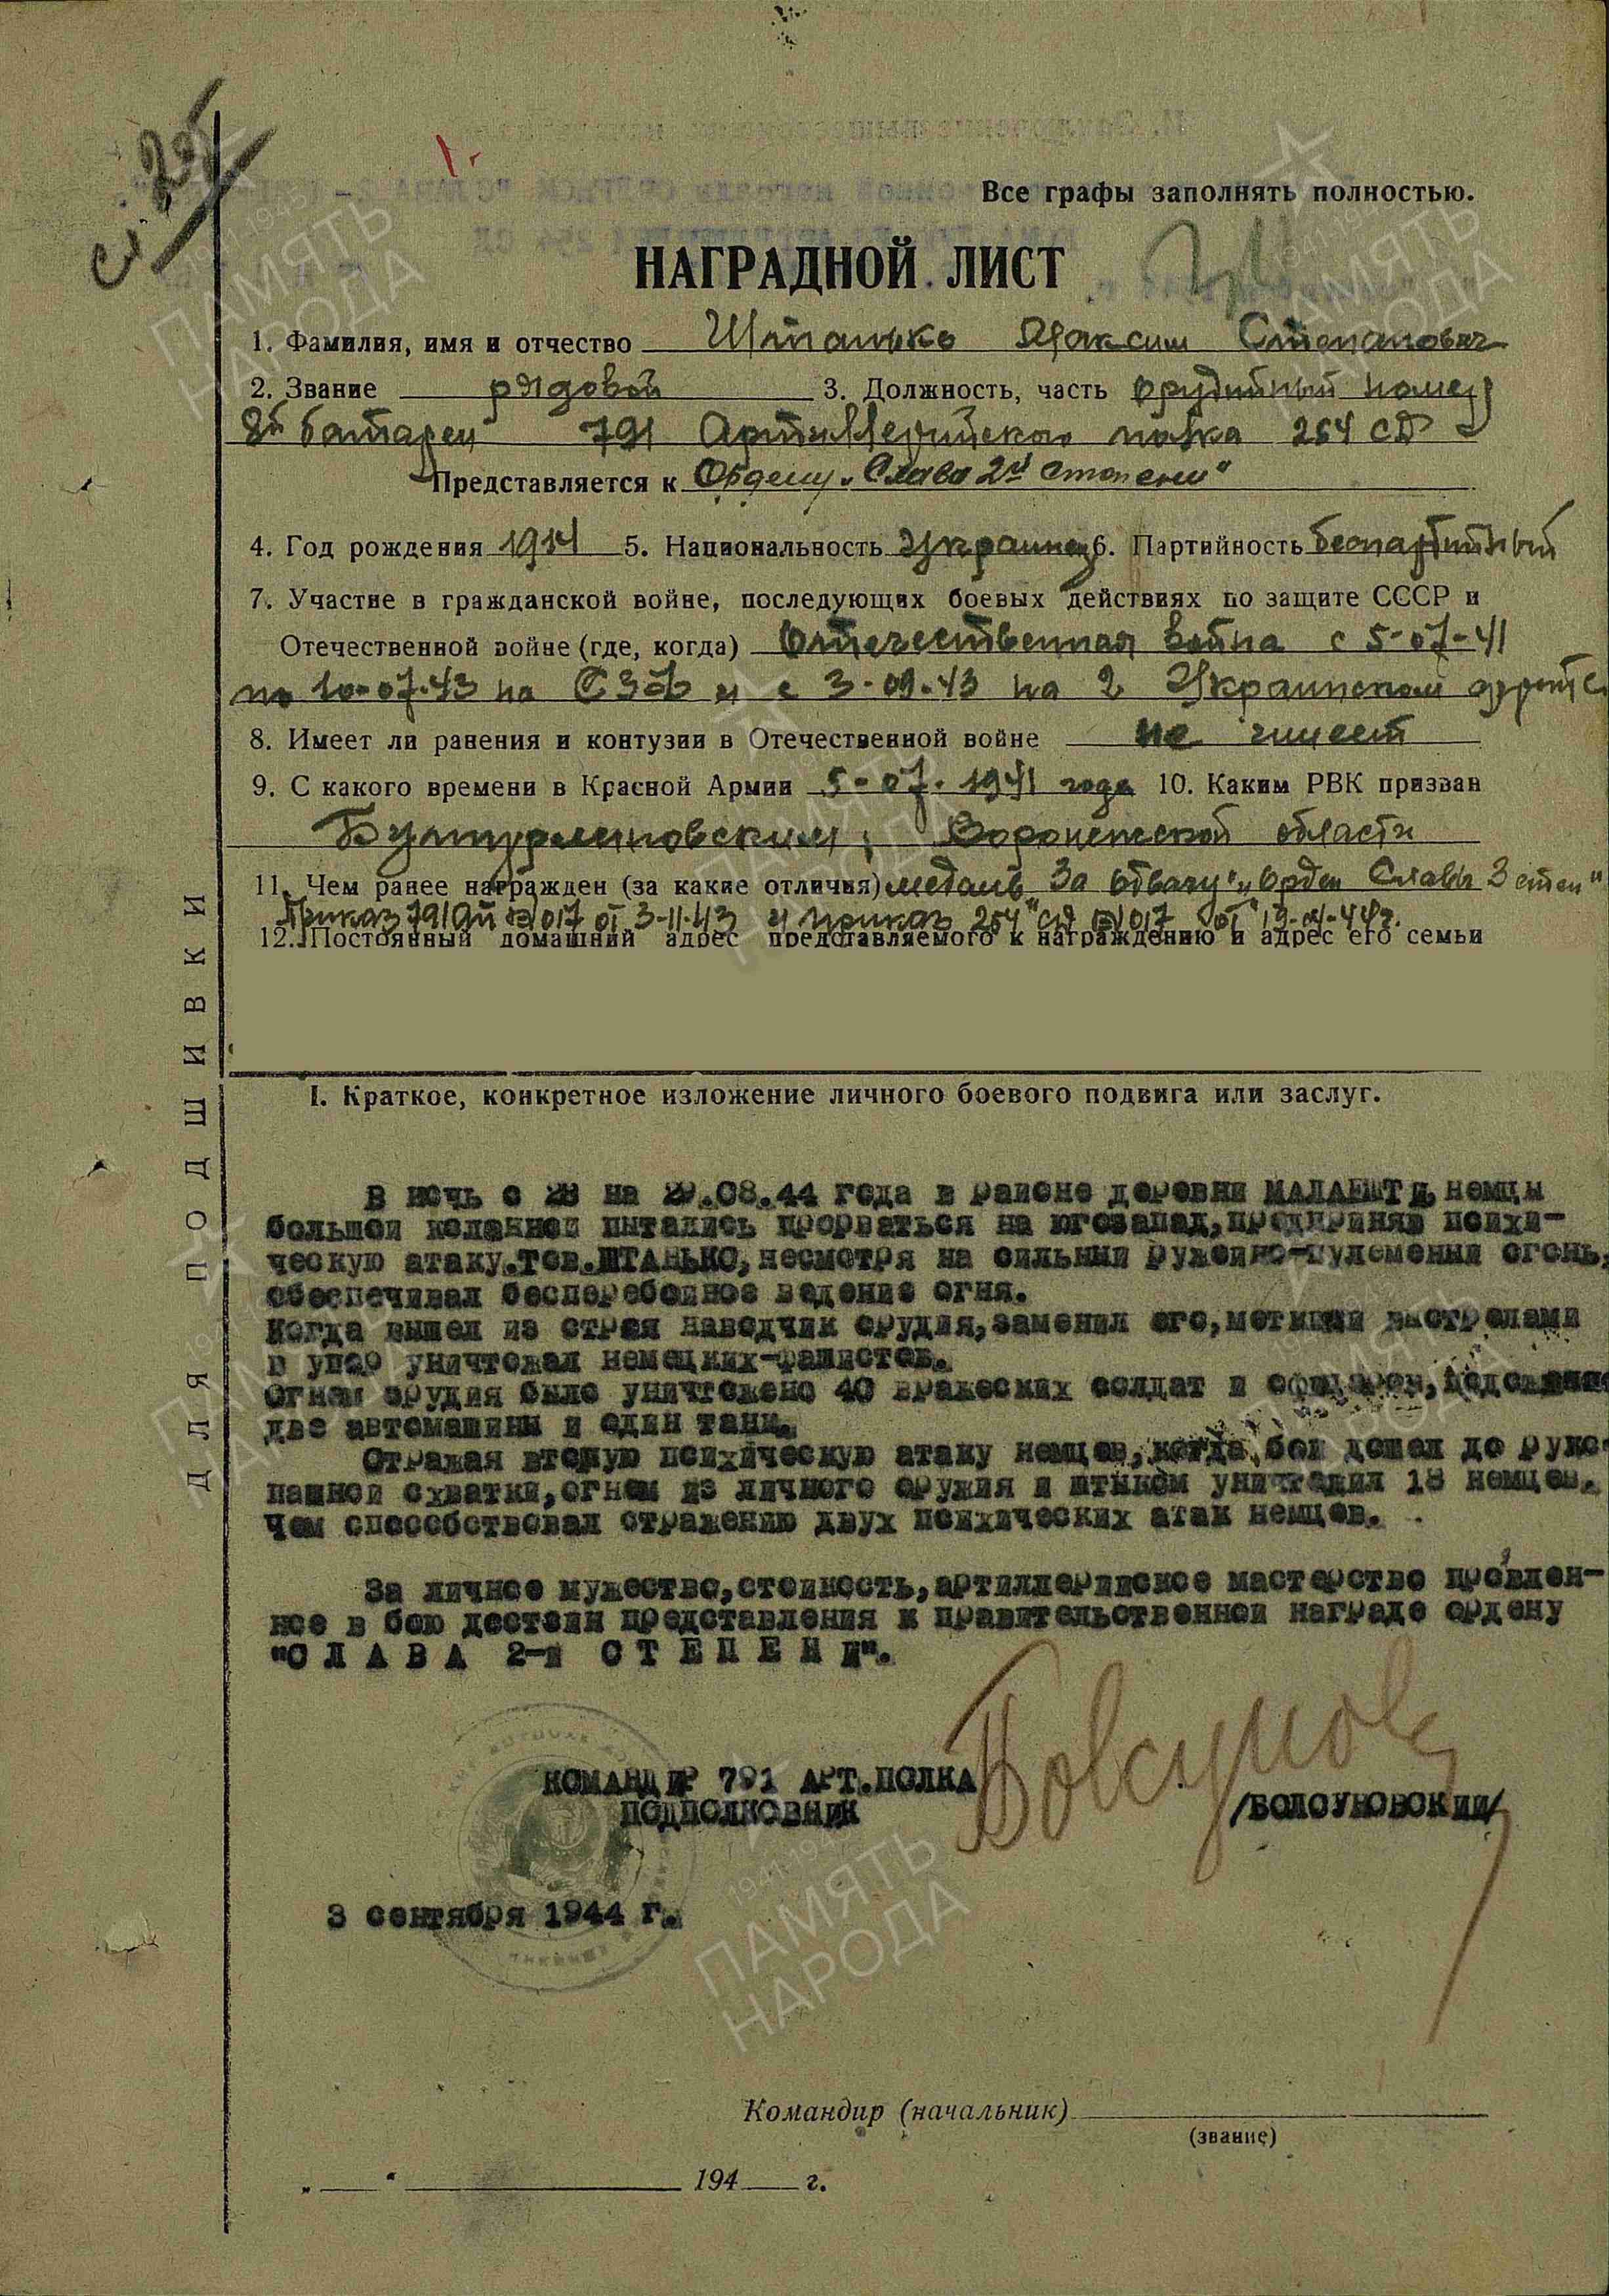 Все графы заполнять полностью.
НАГРАДНОЙ ЛИСТ
1. Фамилия, имя и отчество Штанько Максим Степанович
2. Звание рядовой 3. Должность, часть орудийный номер
8й батареи 791 Артиллерийского полка 254 СД
Представляется к Ордену „Слава 2й степени“
4. Год рождения 1914 5. Национальность украинец 6. Партийность беспартийный
7. Участие в гражданской войне, последующих боевых действиях по защите СССР и
Отечественной войне (где, когда) Отечественная война с 5-07-41
по 10-07-43 на СЗФ и с 3-09-43 на 2 Украинском фронте
8. Имеет ли ранения и контузии в Отечественной войне не имеет
9. С какого времени в Красной Армии 5-07-1941 года 10. Каким РВК призван
Бутурлиновским, Воронежской области
11. Чем ранее награжден (за какие отличия) медаль За отвагу" и орден Славы 3 степ"
Приказ 791 АП №017 от 3-11-43 и приказ 254 СД №017 от 19-04-44г.
12. Постоянный домашний адрес представляемого к награждению и адрес его семьи
ДЛЯ ПОДШИВКИ
I. Краткое, конкретное изложение личного боевого подвига или заслуг.
В ночь с 28 на 29.08.44 года в районе деревни МАЛАЕШТИ, немцы
большой колонной пытались прорваться на югозапад, предприняв психи-
ческую атаку. Тов. ШТАНЬКО, несмотря на сильный ружейно-пулеменый огонь,
обеспечивал бесперебойное ведение огня.
Когда вышел из строя наводчик орудия, заменил его, меткими выстрелами
в упор уничтожал немецких-фашистов.
Огнем орудия было уничтожено 40 вражеских солдат и офицеров,
две автомашины и один танк.
Отражая вторую психическую атаку немцев, когда бой дошел до руко-
пашной схватки, огнем из личного оружия и штыком уничтожил 18 немцев.
Чем способствовал отражению двух психических атак немцев.
За личное мужество, стойкость, артиллерийское мастерство проявлен-
ное в бою достоин представления к правительственной награде ордену
"СЛАВА 2-й СТЕПЕНИ".
КОМАНДИР 791 АРТ.ПОЛКА
ПОДПОЛКОВНИК /БОЛСУНОВСКИЙ/
3 сентября 1944 г.
Командир (начальник)
(звание)
„ “ 194 г.
ПАМЯТЬ НАРОДА